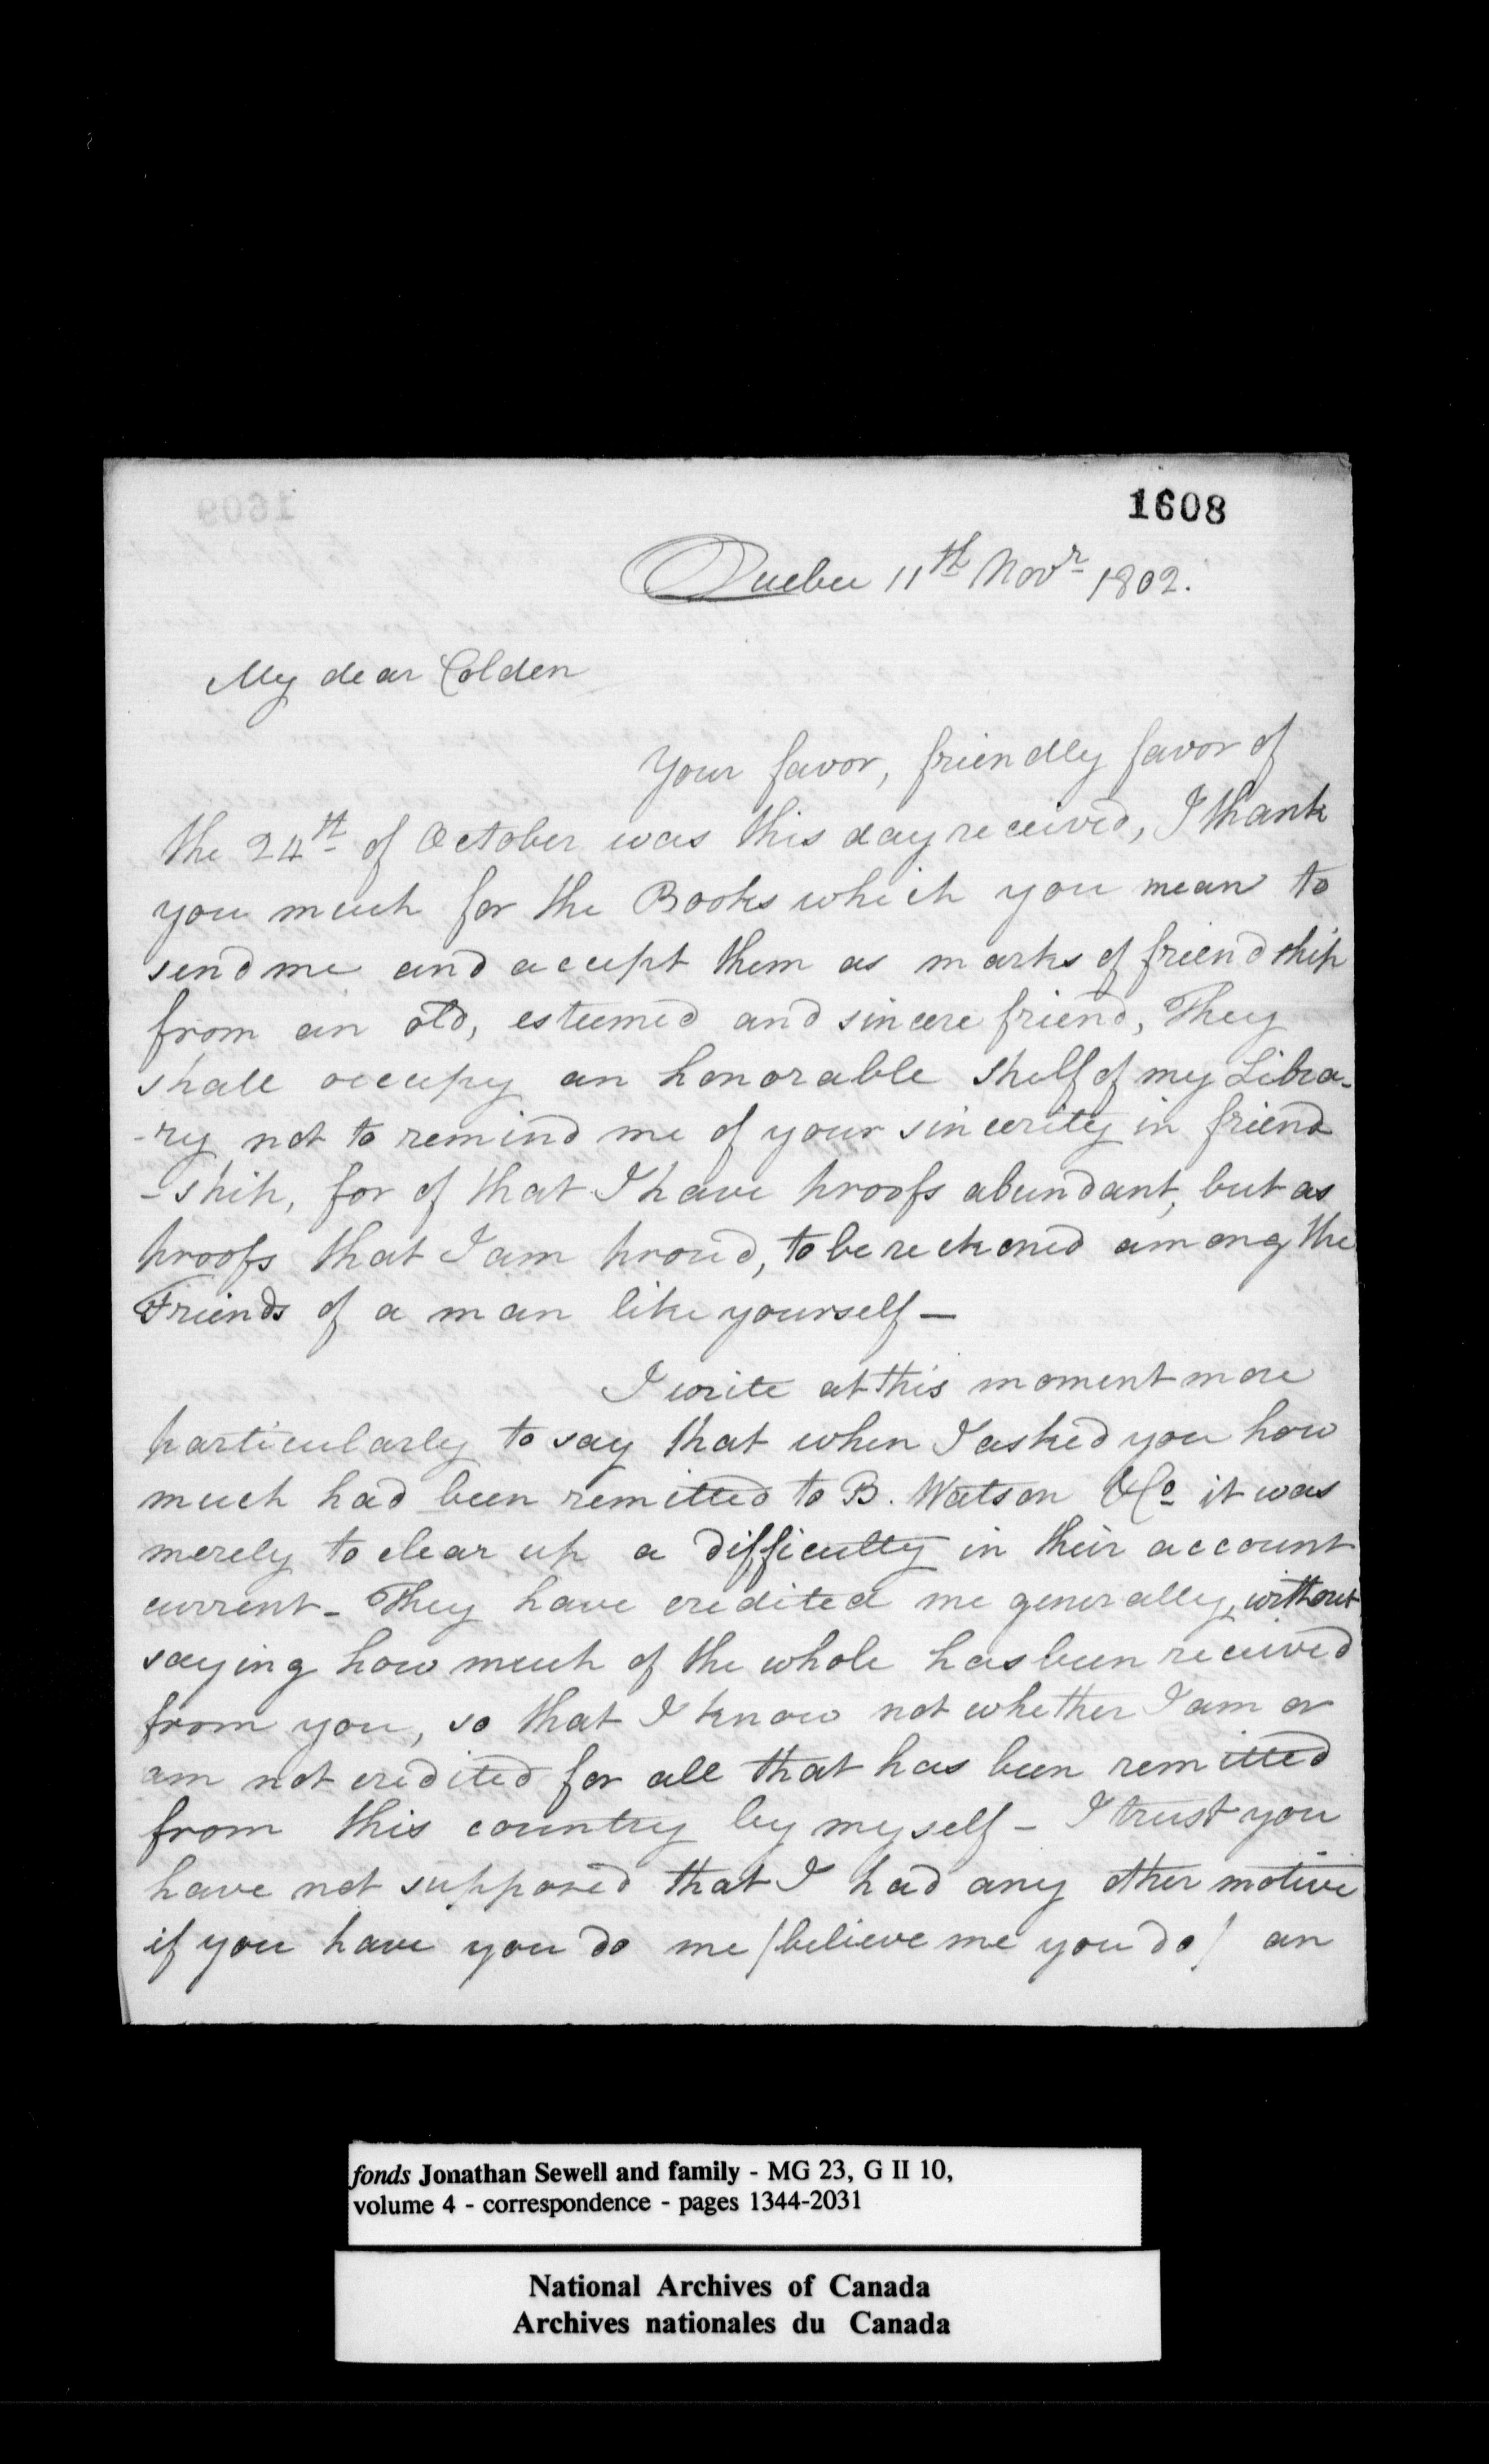 1608
Quebec 11th Novr 1802.
My dear Colden
Your favor, friendly favor of
the 24th of October was this day received, I thank
you much for the Books which you mean to
send me and accept them as marks of friendship
from an old, esteemed and sincere friend, They
shall occupy an honorable shelf of my Libra-
-ry not to remind me of your sincerity in friend
-ship, for of that I have proofs abundant, but as
proofs that I am proud, to be reckoned among the
Friends of a man like yourself—
I write at this moment more
particularly to say that when I asked you how
much had been remitted to B. Watson & Co it was
merely to clear up a difficulty in their account
current - They have credited me generally, without
saying how much of the whole has been received
from you, so that I know not whether I am or
am not credited for all that has been remitted
from this country by myself - I trust you
have not supposed that I had any other motive
if you have you do me / believe me you do / an
fonds Jonathan Sewell and family - MG 23, G II 10,
volume 4 - correspondence - pages 1344-2031
National Archives of Canada
Archives nationales du Canada